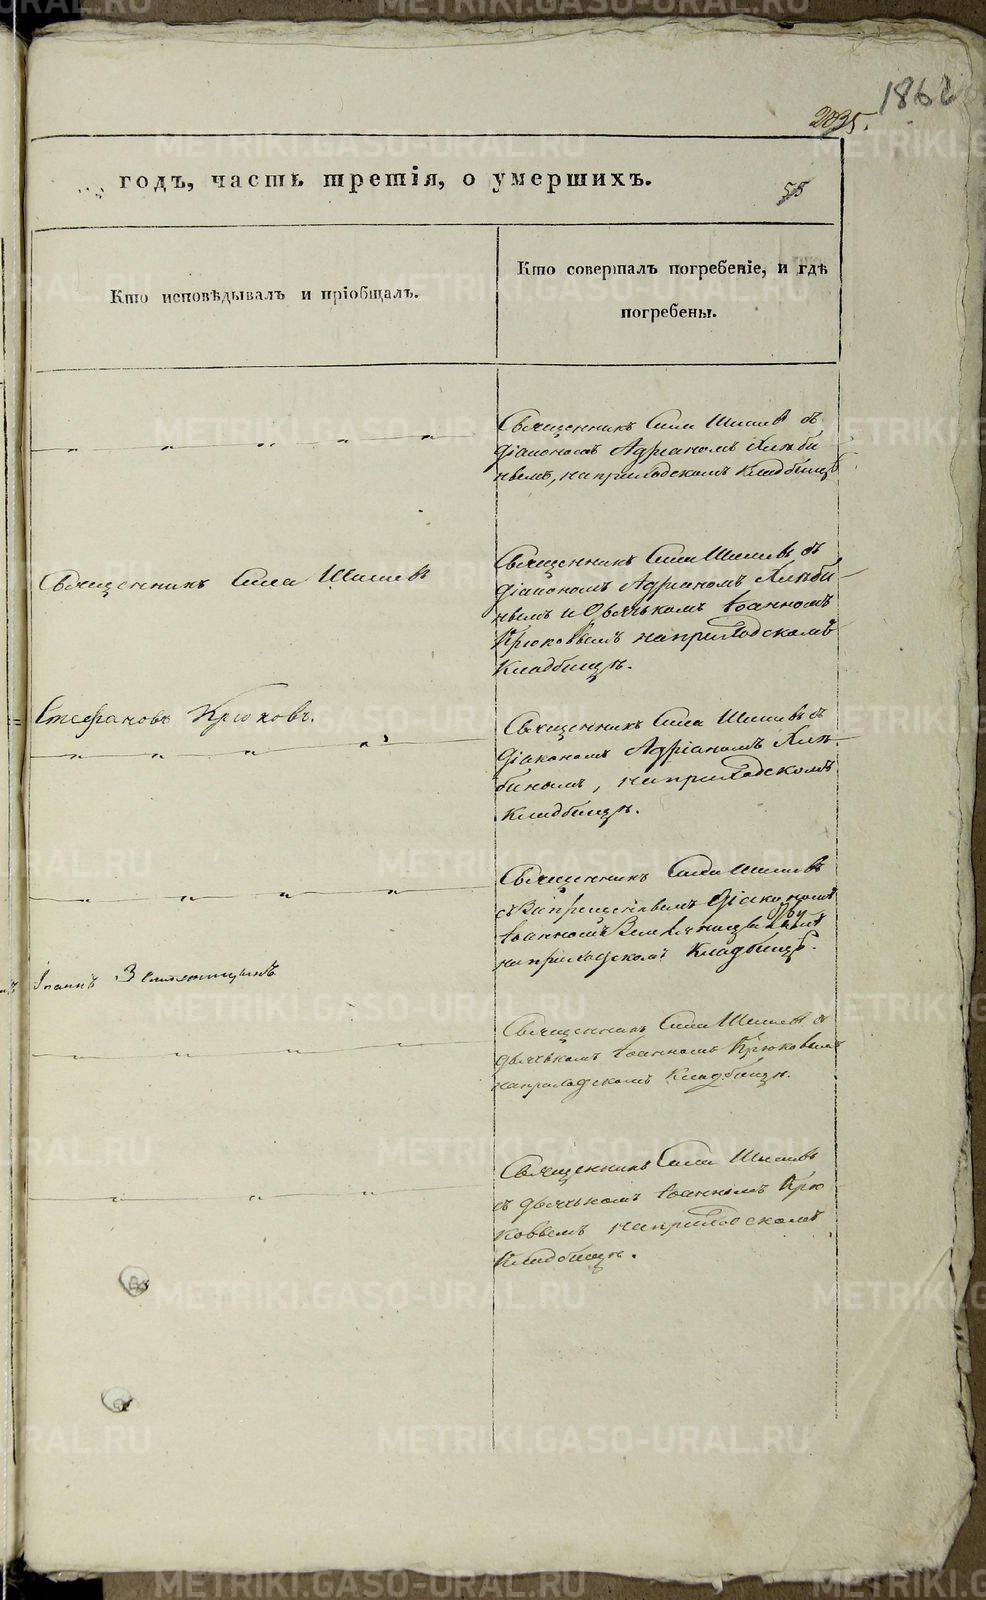 1862
2035.
годъ, часть третія, о умершихъ.
55
Кто исповѣдывалъ и пріобщалъ.
Кто совершалъ погребеніе, и гдѣ
погребены.
Священникъ Сила Шишевъ съ
діакономъ Адріаномъ Хлѣби
нымъ, на приходскомъ кладбищѣ
Священникъ Сила Шишевъ
Священникъ Сила Шишевъ съ
діакономъ Адріаномъ Хлѣби-
нымъ и дьячкомъ Іоанномъ
Крюковымъ на приходскомъ
кладбищѣ.
Стефановъ Крюковъ.
Священникъ Сила Шишевъ съ
діакономъ Адріаномъ Хлѣ-
бинымъ, на приходскомъ
кладбищѣ.
Священникъ Сила Шишевъ
съ запрещеннымъ діакономъ
Іоанномъ
на приходскомъ кладбищѣ.
Іоаннъ
Священникъ Сила Шишевъ съ
дьячкомъ Іоанномъ Крюковымъ
на приходскомъ кладбищѣ.
Священникъ Сила Шишевъ
съ дьячкомъ Іоанномъ Крю
ковымъ на приходскомъ
кладбищѣ.
METRIKI.GASO-URAL.RU